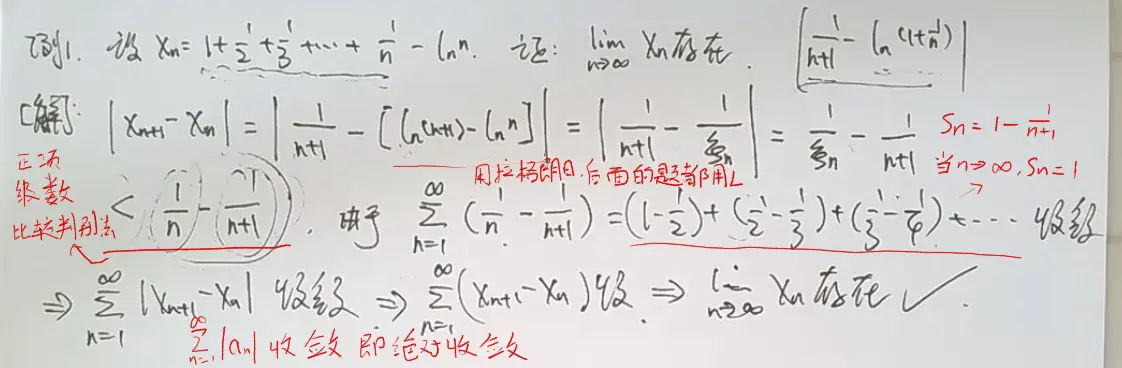 例1. 设 Xn = 1+1/2+1/3+…+1/n - ln n. 证: lim n→∞ Xn 存在. |1/(n+1) - ln(1+1/n)|
[解]: |Xn+1 - Xn| = |1/(n+1) - [ln(n+1) - ln n]| = |1/(n+1) - 1/ξn| = 1/ξn - 1/(n+1)
Sn = 1 - 1/(n+1)
当n→∞, Sn = 1
用拉格朗日, 后面的题都用L
正项
级数
比较判别法
< (1/n - 1/(n+1)). 由于 ∞ Σ n=1 (1/n - 1/(n+1)) = (1-1/2)+(1/2-1/3)+(1/3-1/4)+---- 收敛
⇒ ∞ Σ n=1 |Xn+1 - Xn| 收敛 ⇒ ∞ Σ n=1 (Xn+1 - Xn) 收 ⇒ lim n→∞ Xn 存在 ✓.
∞ Σ n=1 |an| 收敛 即绝对收敛